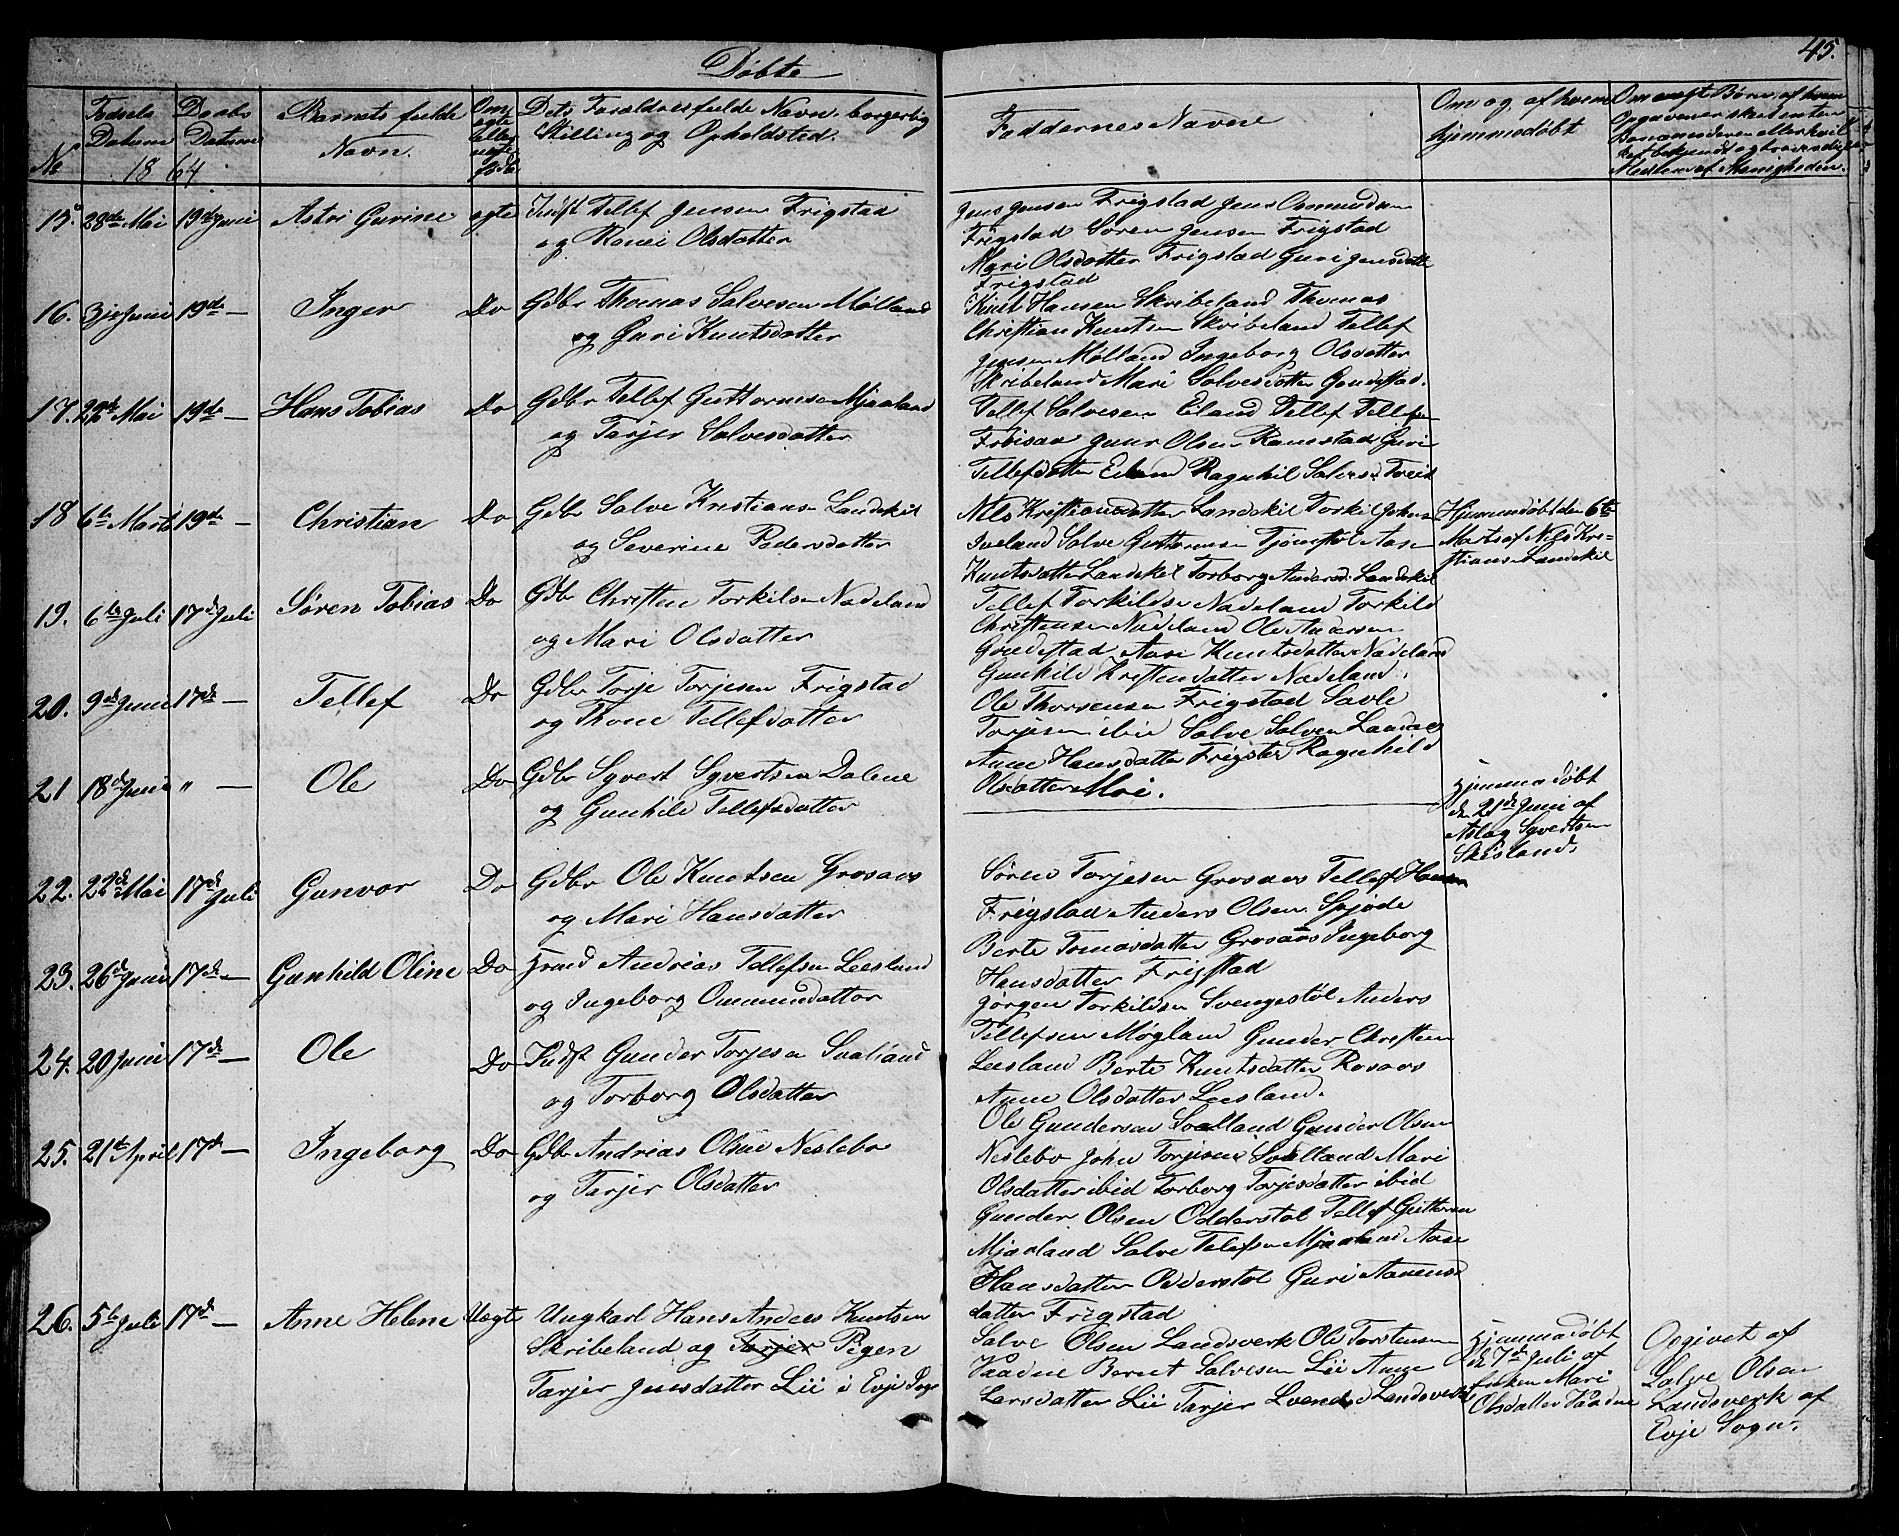 Döbte
45.
No
Fødsels Datum
Daabs Datum
1864
Barnets fulde Navn.
Om ægte eller uægte fødte
Dets Forældres fulde Navn, borgerlig Stilling og Opholdsted.
Faddernes Navne
Om og af hvem hjemmedøbt
15. 28de Mai 19de Juni Astri Gurine ægte Tellef Jensen Frigstad
og Ronei Olsdatter
Jens Jensen Frigstad Jens Ommundsen
Frigstad Søren Jensen Frigstad
Mari Olsdatter Frigstad Guri Jensdatt
Frigstad
16. 3die Juni 19de — Inger Do Gdbr Thomas Salvesen Mølland
og Guri Knutsdatter
Knut Hansen Skribeland Thomas
Christian Knutsen Skribeland Tellef
Jensen Mølland Ingeborg Olsdatter
Skribeland Mari Salvesdatter Gondestad.
17. 22de Mai 19de — Hans Tobias Do Gdbr Tellef Guttormsen Mjaaland
og Tarjer Salvesdatter
Tellef Salvesen Eiland Tellef Tellefsen
Frøisaa Olsen Ramstad Guri
Tellefsdatter Eiland Ragnhil Salvesd.
18 6te Marts 19de — Christian Do Gdbr Salve Kristiansen Landskil
og Severine Pedersdatter
Nils Kristiansdatter Landskil Torkil Johns
Iveland Salve Guttormsen Tjomstøl Aase
Knutsdatter Landskil Torborg Andersd. Landskil
Hjemmedøbt den 6te
Marts af Nils Kri-
stiansen Landskil
19. 6te Juli 17de Juli Søren Tobias Do Gdbr Christen Torkilsen Nadeland
og Mari Olsdatter
Tellef Torkildsen Nadeland Torkild
Christensen Nadeland Ole Andersen
Gondestad Aase Knutsdatter Nadeland
Gunhild Kristensdatter Nadeland.
20. 9de Juni 17de — Tellef Do Gdbr Torje Torjesen Frigstad
og Thone Tellefsdatter
Ole Thorsensen Frigstad Savle
Torjesen ibi Salve Salvesen Landaas
Anne Hansdatter Frigstad Ragnhild
Olsdatter Moi.
21 18de Juni " — Ole Do Gdbr Syvert Syvertsen Dalene
og Gunhild Tellefsdatter
Hjemmedøbt
den 21de Juni af
Aslag Syvertsen
Skisland.
22. 22de Mai 17de Juli Gunvor Do Gdbr Ole Knutsen Grosaas
og Mari Hansdatter
Søren Torjesen Grosaas Tellef Hansen
Frigstad Anders Olsen
Berte Tomasdatter Grosaas Ingeborg
Hansdatter Frigstad
23. 26de Juni 17de — Gunhild Oline Do Andreas Tellefsen Leesland
og Ingeborg Ommundatter
Jørgen Torkildsen Svengestøl Anders
Tellefsen Møgland Gunder Christen
Leesland Berte Knutsdatter Rosaas
Anne Olsdatter Leesland.
24. 20 Juni 17de — Ole Do Gunder Torjesen Svaland
og Torborg Olsdatter
Ole Gundersen Svalland Gunder Olsen
Neslebo John Torjesen Svalland Mari
Olsdatter ibid Torborg Torjesdatter ibid
25. 21de April 17de — Ingeborg Do Gdbr Andrias Olsen Neslebo
og Tarjer Olsdatter
Gunder Olsen Odderstøl Tellef Guttormsen
Mjaaland Salve Tellefsen Mjaaland Aase
Hansdatter Odderstøl Guri Aanens
datter Frigstad
26. 5te Juli 17de — Anne Helene Uægte Ungkarl Hans Andres Knutsen
Skribeland og Tarjer Pigen
Tarjer Jensdatter Lii i Evje Sogn
Salve Olsen Landsverk Ole Torstensen
Vaadne Bernt Salvesen Lii Anne
Larsdatter Lii Tarjer Landsverk
Hjemmedøbt
de 7de Juli af
Mari
Olsdatter Vaadne
Opgivet af
Salve Olsen
Landsverk af
Evje Sogn.